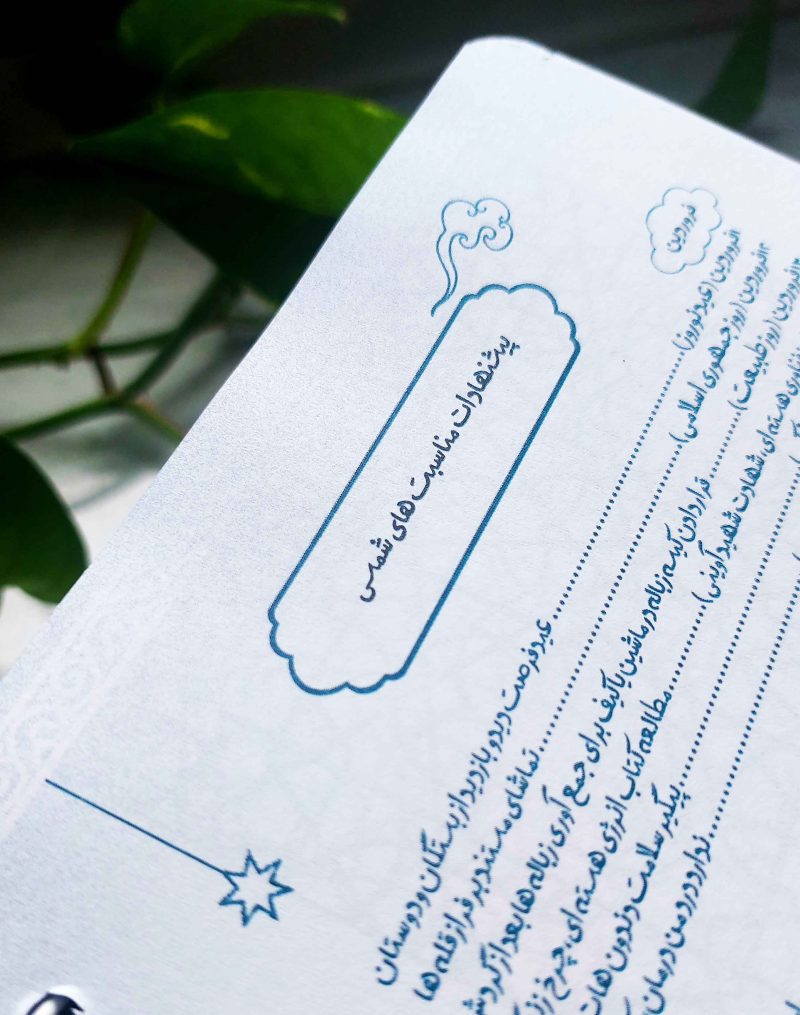 پیشنهادات مناسبت های شمسی
فروردین
۱فروردین (عید نوروز)........................ عید فرصت دید و بازدید از بستگان و دوستان
۱۲فروردین (روز جمهوری اسلامی)........................ تماشای مستند بر فراز قله ها
۱۳فروردین (روز طبیعت)............ قرار دادن کیسه زباله در ماشین یا کیف برای جمع آوری زباله ها بعد از گردش
هسته ای، شهادت شهید آوینی)............ مطالعه کتاب انرژی هسته ای، چرخ
........................ پیگیر سلامت دندون هات
........................ ندارد درد من درمان